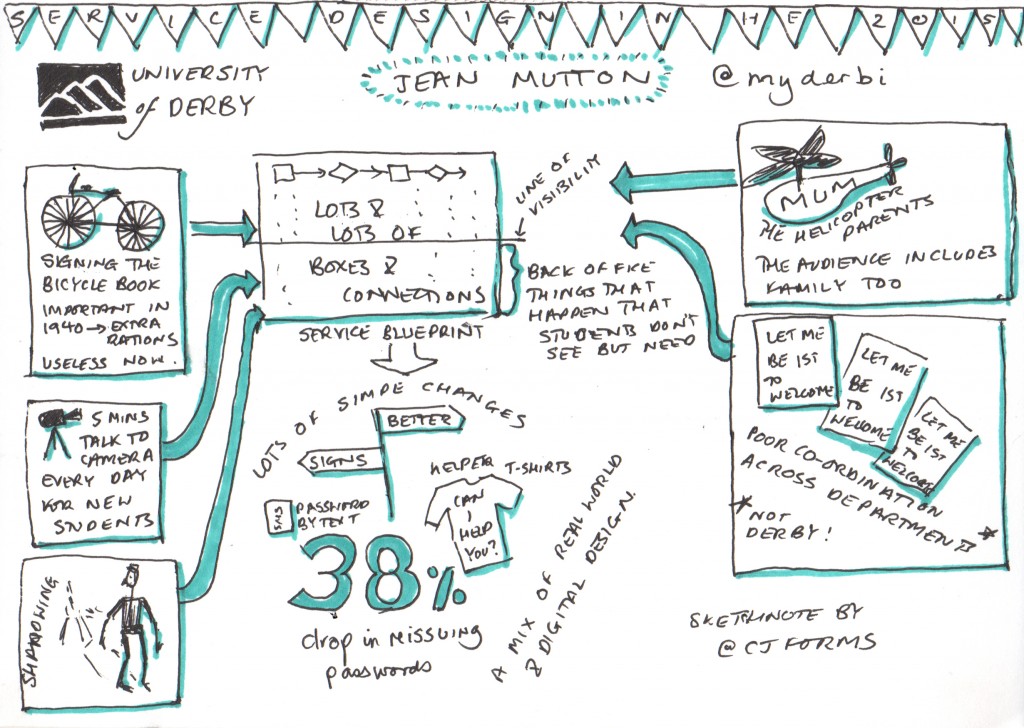 SERVICE DESIGN IN HE 2015
UNIVERSITY
of DERBY
JEAN MUTTON
@myderbi
SIGNING THE
BICYCLE BOOK
IMPORTANT IN
1940 → EXTRA
RATIONS
USELESS NOW.
5 MINS
TALK TO
CAMERA
EVERY DAY
FOR NEW
STUDENTS
SHADOWING
LOTS &
LOTS OF
BOXES &
CONNECTIONS
SERVICE BLUEPRINT
LINE OF
VISIBILITY
BACK OFFICE
THINGS THAT
HAPPEN THAT
STUDENTS DON'T
SEE BUT NEED
LOTS OF SIMPE CHANGES
BETTER
SIGNS
SMS
PASSWORD
BY TEXT
HELPER T-SHIRTS
CAN
I
HELP
YOU?
38%
drop in reissuing
passwords
A MIX OF REAL WORLD
& DIGITAL DESIGN.
MUM
THE HELICOPTER
PARENTS
THE AUDIENCE INCLUDES
FAMILY TOO
LET ME
BE 1ST
TO
WELCOME
LET ME
BE 1ST
TO
WELCOME
LET ME
BE 1ST
TO
WELCOME
POOR CO-ORDINATION
ACROSS DEPARTMENTS *
* NOT
DERBY!
SKETCHNOTE BY
@CJFORMS